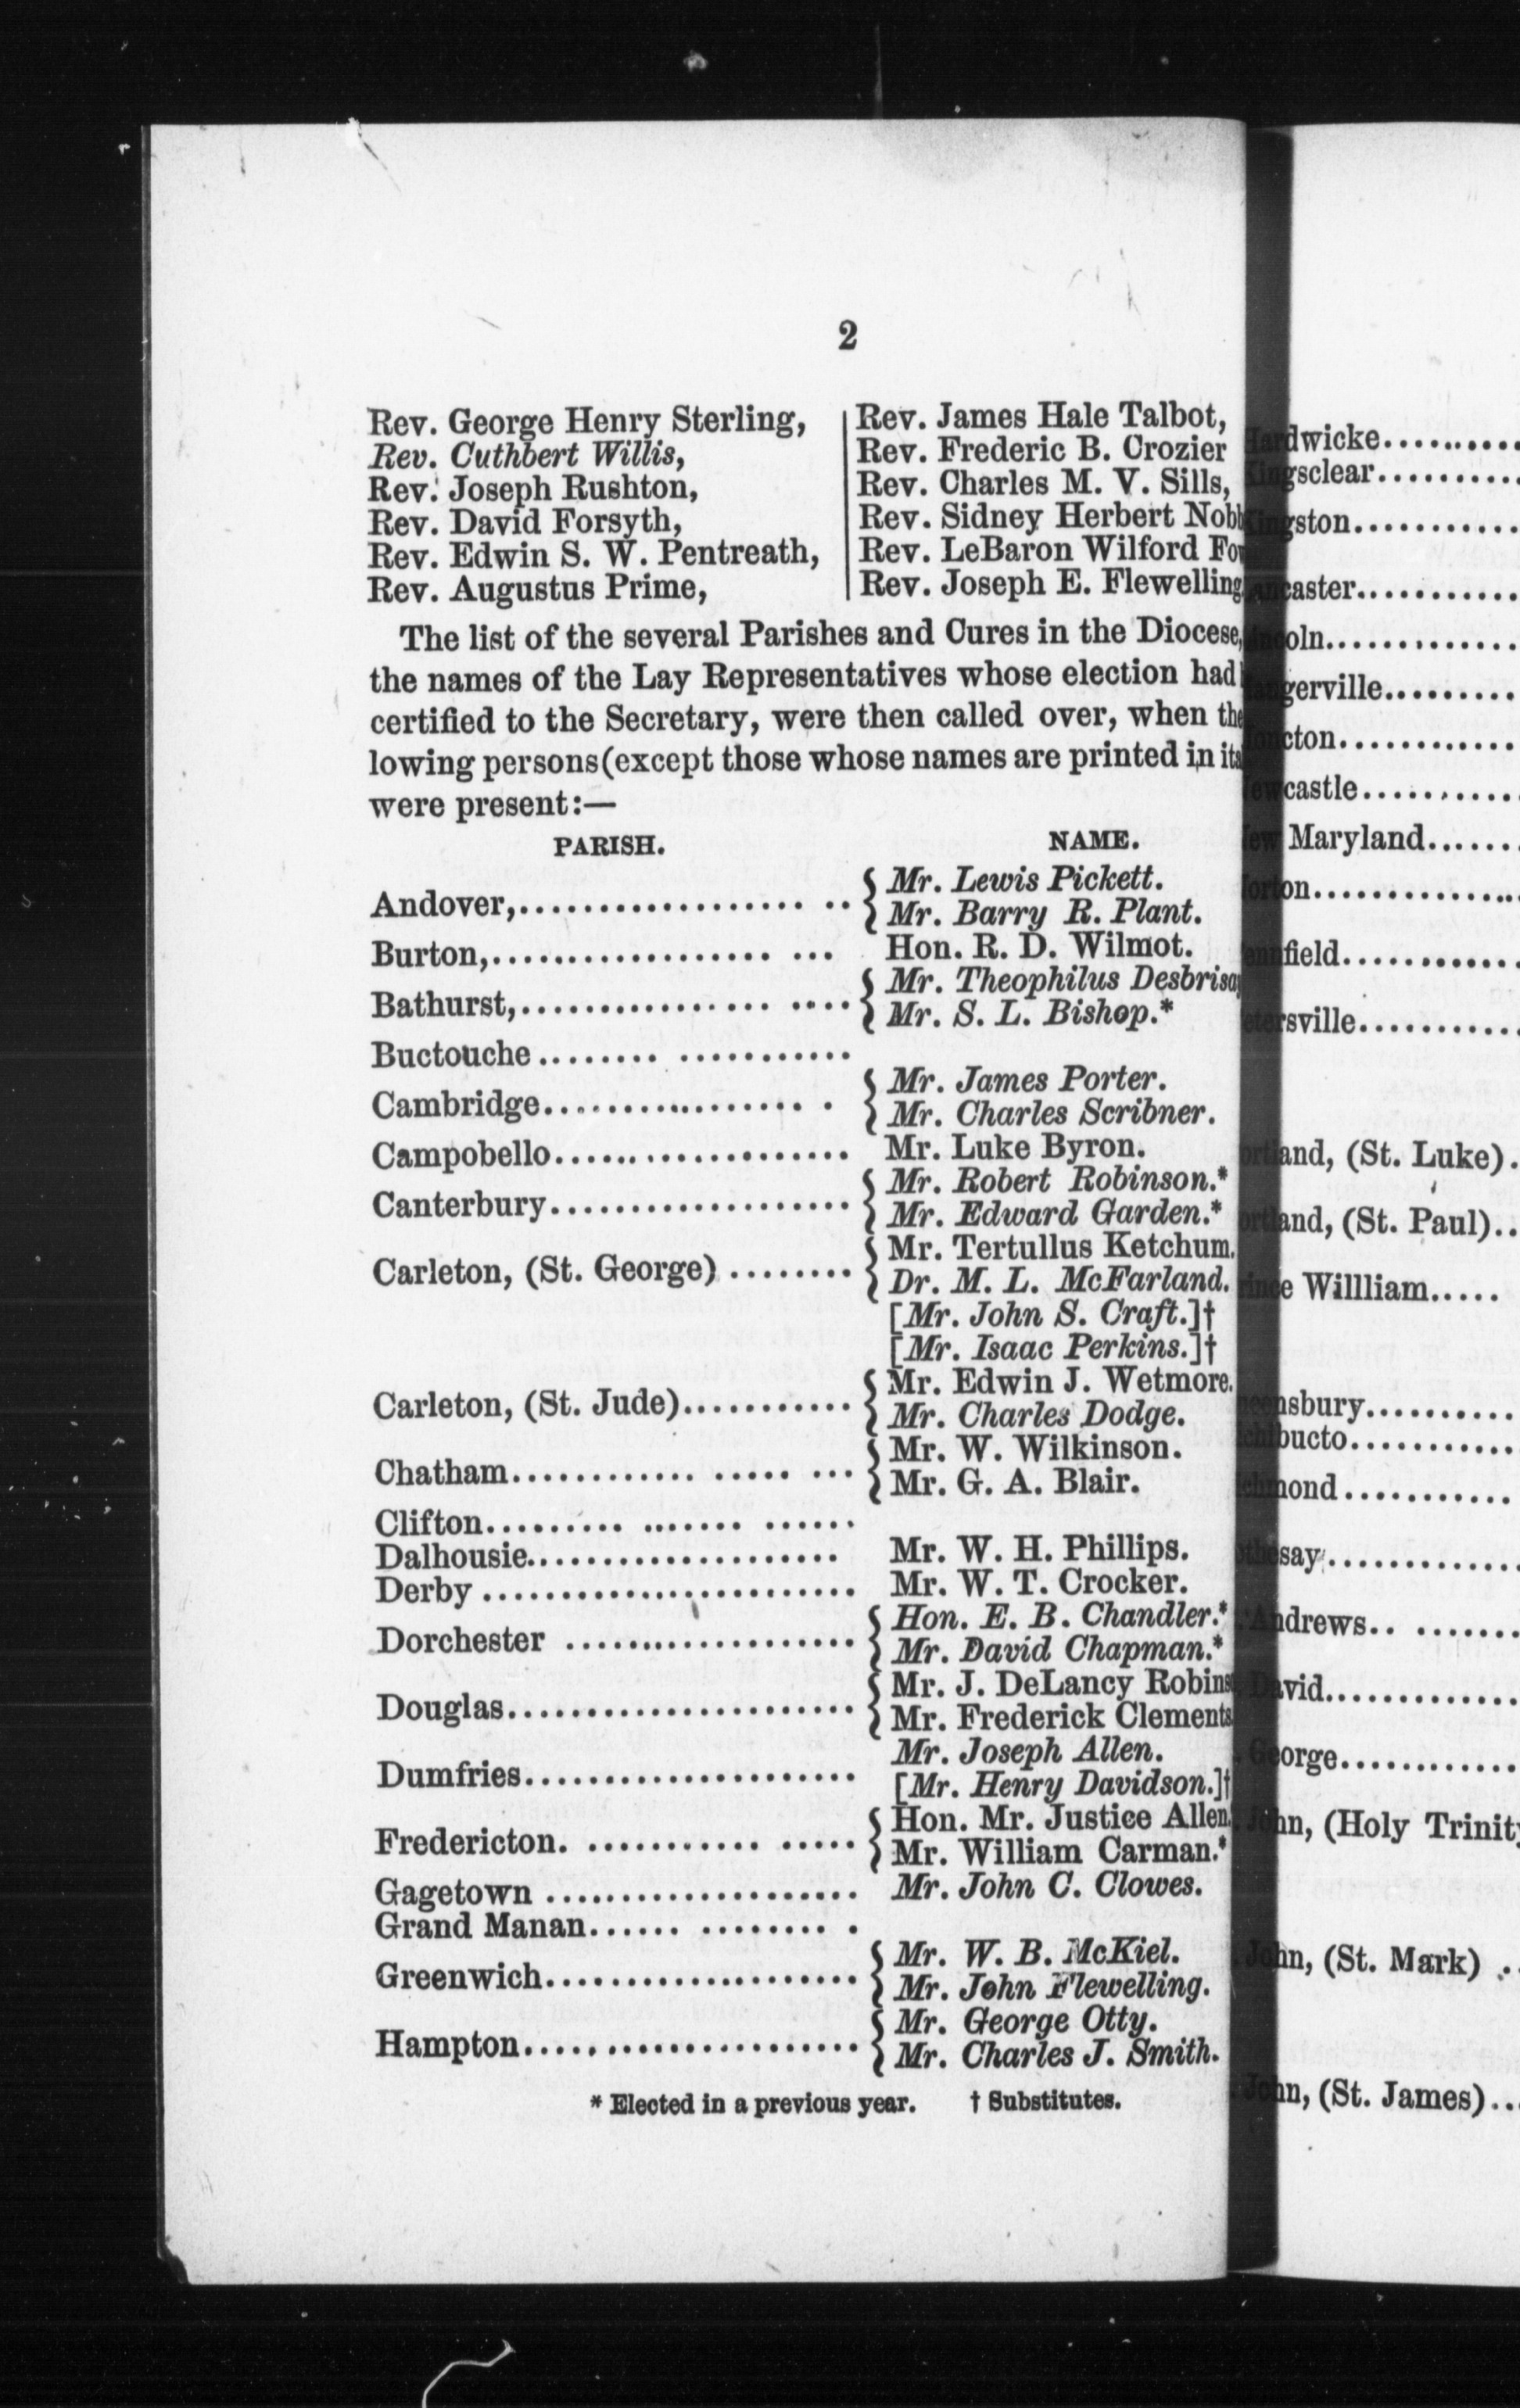 2
Rev. George Henry Sterling,
Rev. Cuthbert Willis,
Rev. Joseph Rushton,
Rev. David Forsyth,
Rev. Edwin S. W. Pentreath,
Rev. Augustus Prime,
Rev. James Hale Talbot,
Rev. Frederic B. Crozier
Rev. Charles M. V. Sills,
Rev. Sidney Herbert
Rev. LeBaron Wilford
Rev. Joseph E. Flewelling
The list of the several Parishes and Cures in the Diocese,
the names of the Lay Representatives whose election had
certified to the Secretary, were then called over, when the
lowing persons (except those whose names are printed in
were present:—
PARISH. NAME.
Andover,.................... .. { Mr. Lewis Pickett.
Mr. Barry R. Plant.
Burton,.................... ... Hon. R. D. Wilmot.
Bathurst,.................. .... { Mr. Theophilus
Mr. S. L. Bishop.*
Buctouche........ ...........
Cambridge.................... . { Mr. James Porter.
Mr. Charles Scribner.
Campobello..................... Mr. Luke Byron.
Canterbury..................... { Mr. Robert Robinson.*
Mr. Edward Garden.*
Carleton, (St. George) ........ { Mr. Tertullus Ketchum.
Dr. M. L. McFarland.
[Mr. John S. Craft.]†
[Mr. Isaac Perkins.]†
Carleton, (St. Jude)........... { Mr. Edwin J. Wetmore.
Mr. Charles Dodge.
Chatham............. ..... ... { Mr. W. Wilkinson.
Mr. G. A. Blair.
Clifton......... ....... ......
Dalhousie..................... Mr. W. H. Phillips.
Derby ......................... Mr. W. T. Crocker.
Dorchester ................... { Hon. E. B. Chandler.*
Mr. David Chapman.*
Douglas....................... { Mr. J. DeLancy
Mr. Frederick Clements
Dumfries...................... Mr. Joseph Allen.
[Mr. Henry Davidson.]†
Fredericton. ........... ..... { Hon. Mr. Justice Allen.
Mr. William Carman.*
Gagetown ..................... Mr. John C. Clowes.
Grand Manan...... ........ .
Greenwich..................... { Mr. W. B. McKiel.
Mr. John Flewelling.
Hampton...................... { Mr. George Otty.
Mr. Charles J. Smith.
* Elected in a previous year. † Substitutes.
Hardwicke..........
Kingsclear..........
Kingston...........
Lancaster...........
Lincoln.............
Maugerville.........
Moncton............
Newcastle..........
New Maryland......
Norton..............
Pennfield............
Petersville...........
Portland, (St. Luke).
Portland, (St. Paul)..
Prince Willliam.....
Queensbury..........
Richibucto...........
Richmond...........
Rothesay............
Andrews.. .......
David.............
George............
John, (Holy
John, (St. Mark) ..
John, (St. James)...